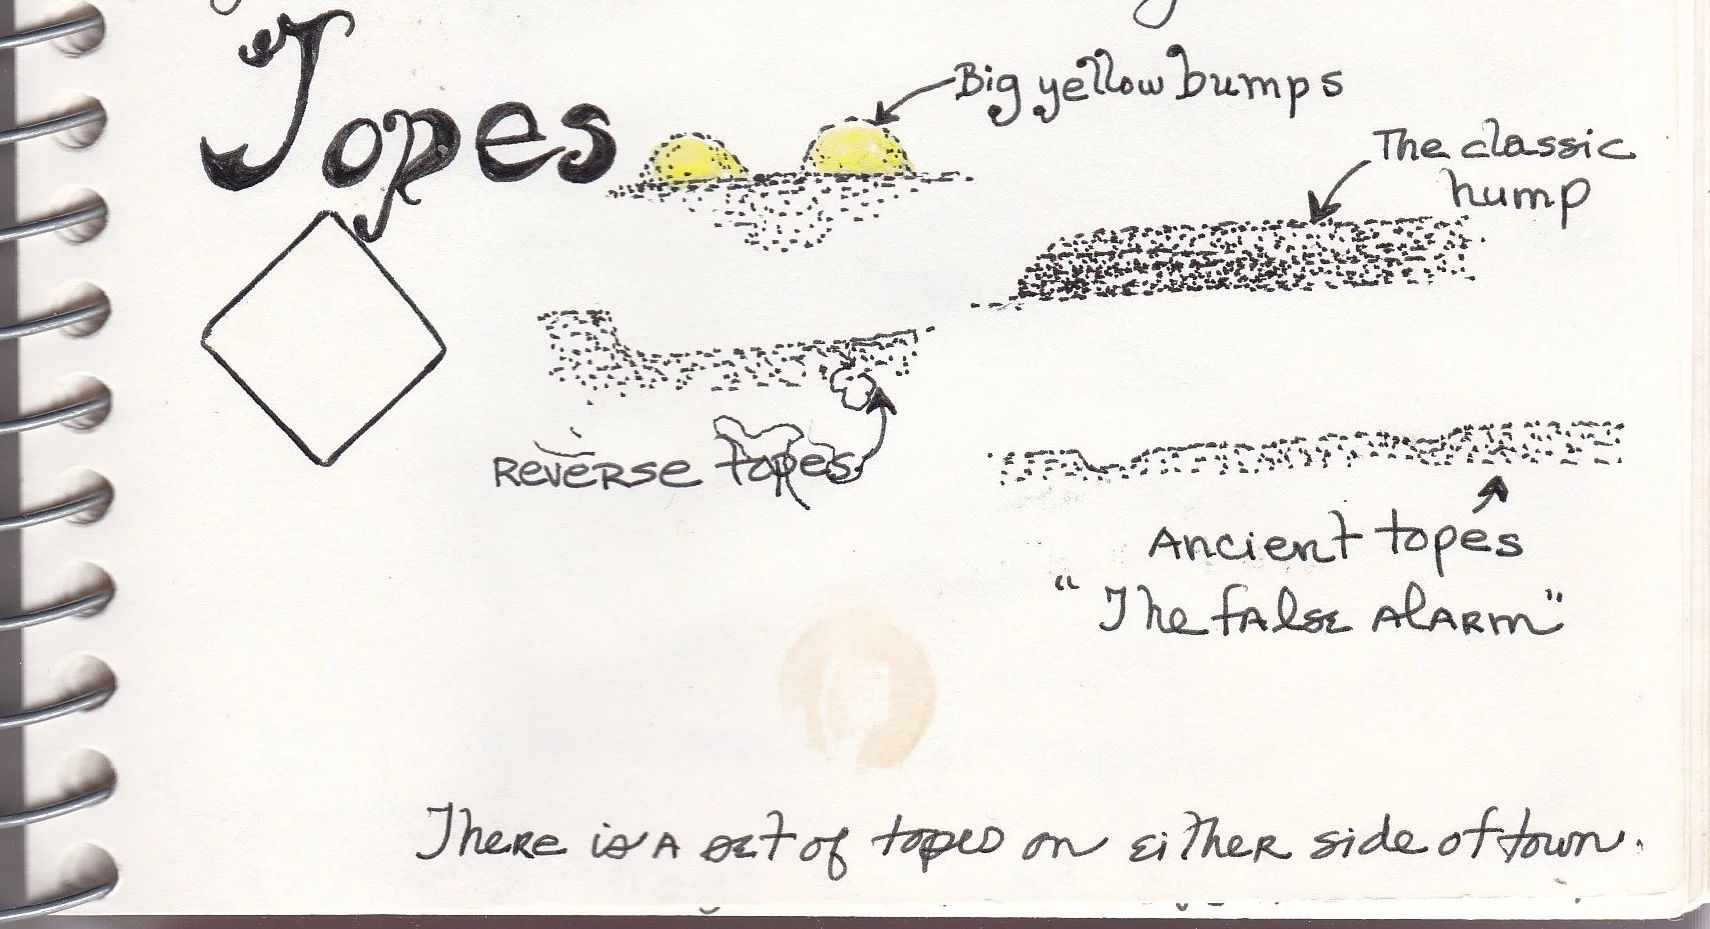 Topes
Big yellow bumps
The classic
hump
Reverse topes
Ancient topes
"The false alarm"
There is a set of topes on either side of town.